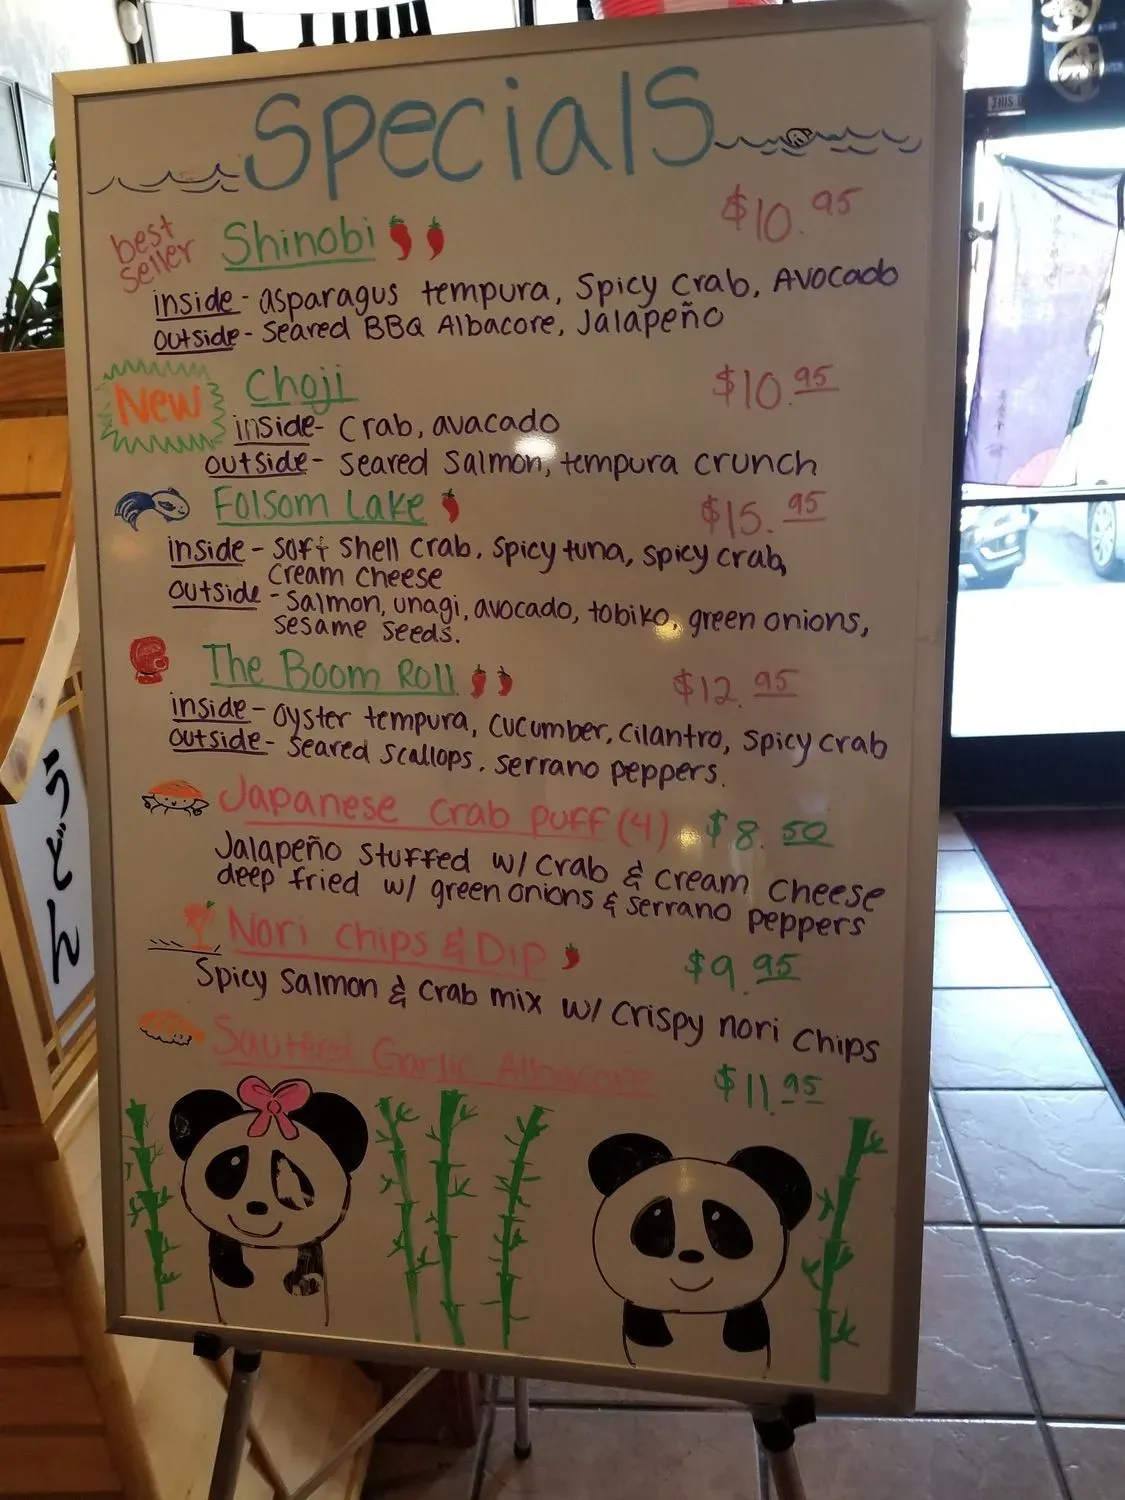 Specials
best seller Shinobi $10.95
inside - asparagus tempura, Spicy Crab, Avocado
outside - Seared BBQ Albacore, Jalapeño
New Choji $10.95
inside - Crab, avacado
outside - Seared Salmon, tempura crunch
Folsom Lake $15.95
inside - Soft Shell Crab, Spicy tuna, Spicy crab,
Cream Cheese
outside - Salmon, unagi, avocado, tobiko, green onions,
Sesame Seeds.
The Boom Roll $12.95
inside - Oyster tempura, cucumber, cilantro, Spicy crab
outside - Seared Scallops. Serrano peppers.
Japanese Crab Puff (4) $8.50
Jalapeño Stuffed w/ Crab & Cream Cheese
deep fried w/ green onions & Serrano peppers
Nori Chips & Dip $9.95
Spicy Salmon & Crab mix w/ Crispy nori Chips
Garlic Albacore $11.95
うどん
THIS